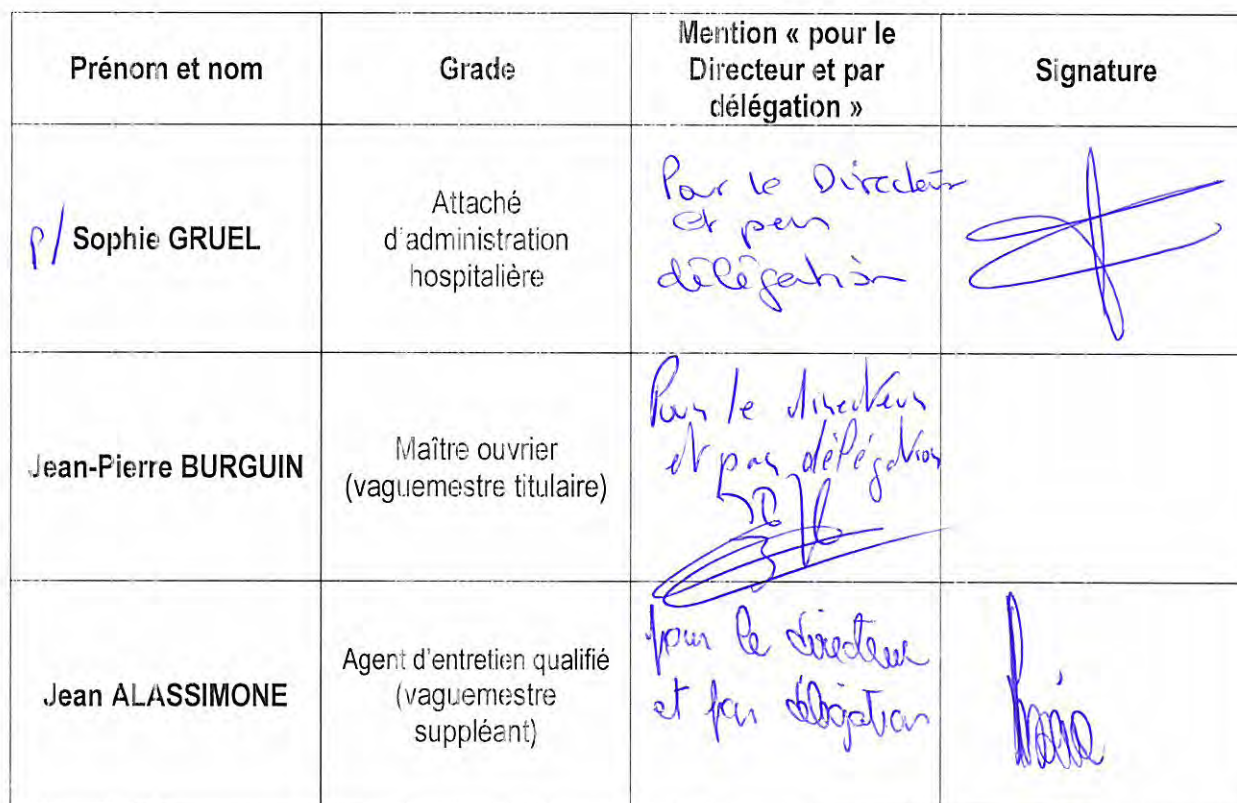 Prénom et nom
Grade
Mention « pour le
Directeur et par
délégation »
Signature
p/ Sophie GRUEL
Attaché
d'administration
hospitalière
Pour le Directeur
et par
délégation
Jean-Pierre BURGUIN
Maître ouvrier
(vaguemestre titulaire)
Pour le directeur
et par délégation
Jean ALASSIMONE
Agent d'entretien qualifié
(vaguemestre
suppléant)
pour le directeur
et par délégation